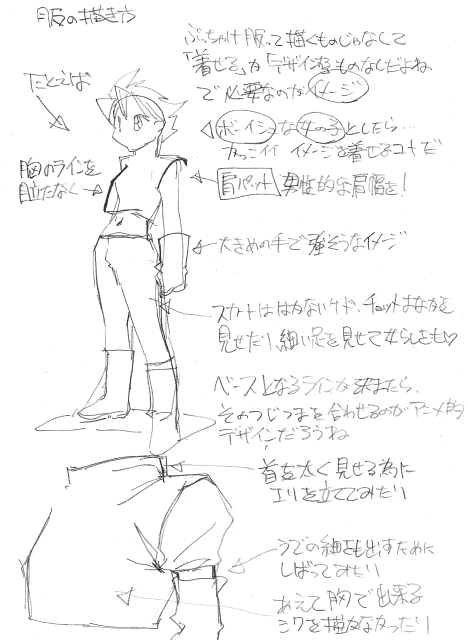 服の描き方
ぶっちゃけ服って描くものじゃなくて
「着せる」か「デザインする」ものなんだよね
で必要なのがイメージ
たとえば
ボーイシュな女の子としたら…
かっこイイ イメージを着せるコトだ
胸のラインを
目立たなく
肩パット 男性的な肩幅を!
大きめの手で強そうなイメージ
スカートははかないケド、チョットおなかを
見せたり、細い足を見せて女らしさも♡
ベースとなるラインが出来たら、
そのつじつまを合わせるのがアニメ的
デザインだろうね
首を太く見せる為に
エリを立ててみたり
うでの細さも出すために
しばってみたり
あえて胸で出来る
シワを描かなかったり